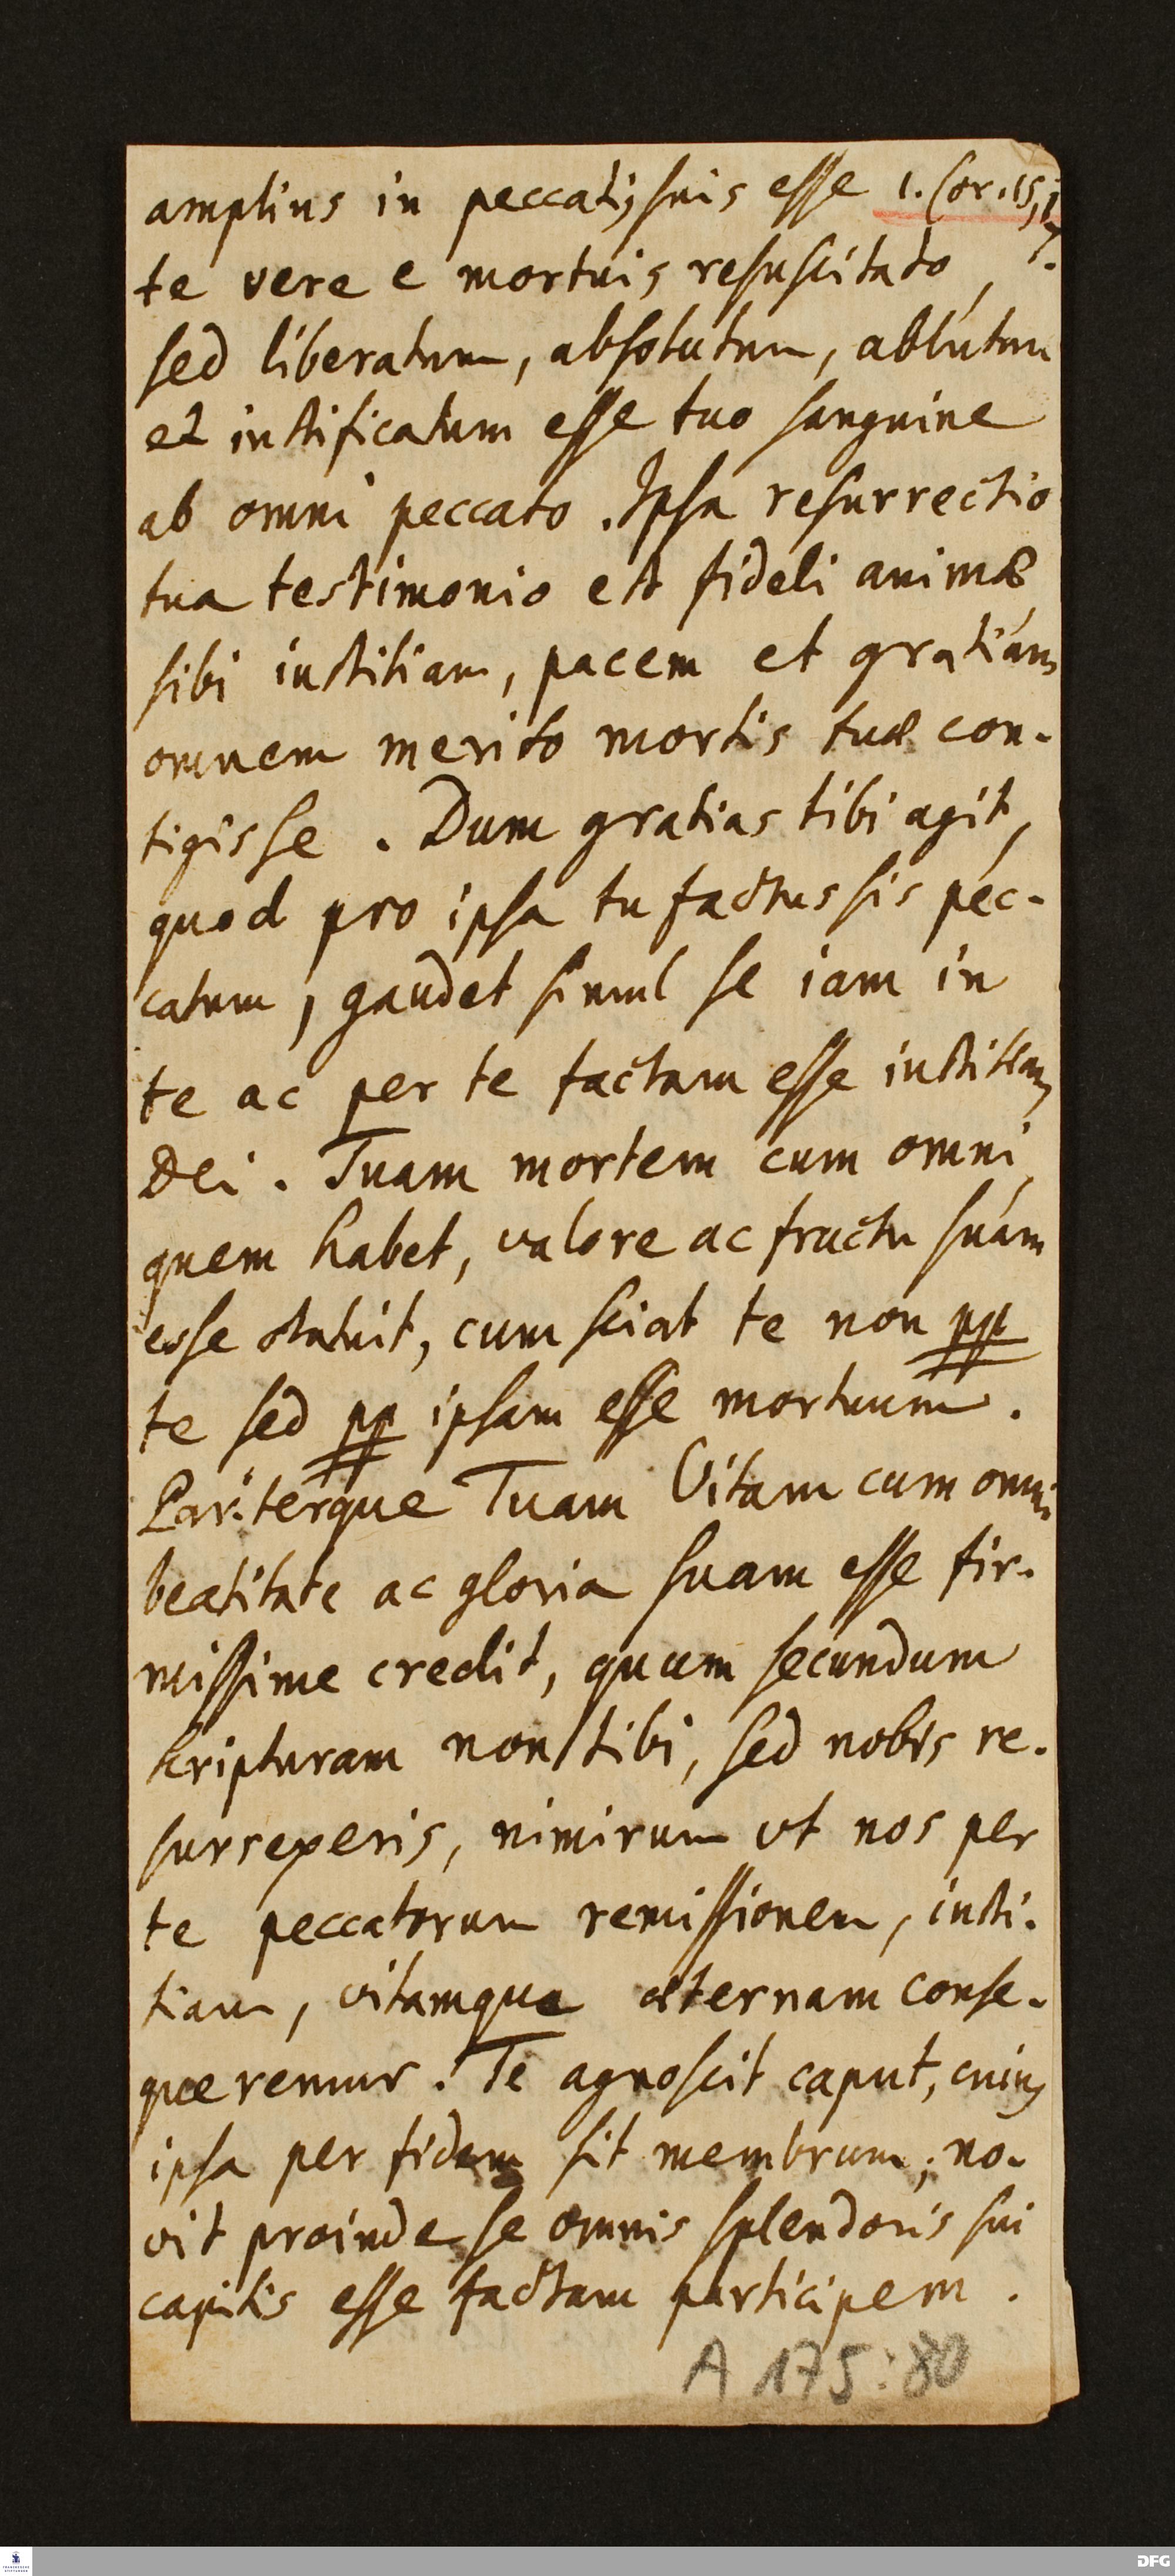 amplius in peccatis suis esse 1. Cor. 15, 17.
te vere e mortuis resuscitato,
sed liberatum, absolutum, ablutum
et iustificatum esse tuo sanguine
ab omni peccato. Ipsa resurrectio
tua testimonio est fideli animæ,
sibi iustitiam, pacem et gratiam
omnem merito mortis tuæ con-
tigisse. Dum gratias tibi agit,
quod pro ipsa tu factus sis pec-
catum, gaudet simul se iam in
te ac per te factam esse iustitiam
Dei. Tuam mortem cum omni,
quem habet, valore ac fructu suam
esse statuit, cum sciat te non pp
te sed pp ipsam esse mortuum.
Pariterque Tuam Vitam cum omni
beatitate ac gloria suam esse fir-
missime credit, quum secundum
scripturam non tibi, sed nobis re-
surrexeris, nimirum ut nos per
te peccatorum remissionem, iusti-
tiam, vitamque æternam conse-
queremur. Te agnoscit caput, cuius
ipsa per fidem sit membrum; no-
vit proinde se omnis splendoris sui
capitis esse factam participem.
A 175:80
DFG